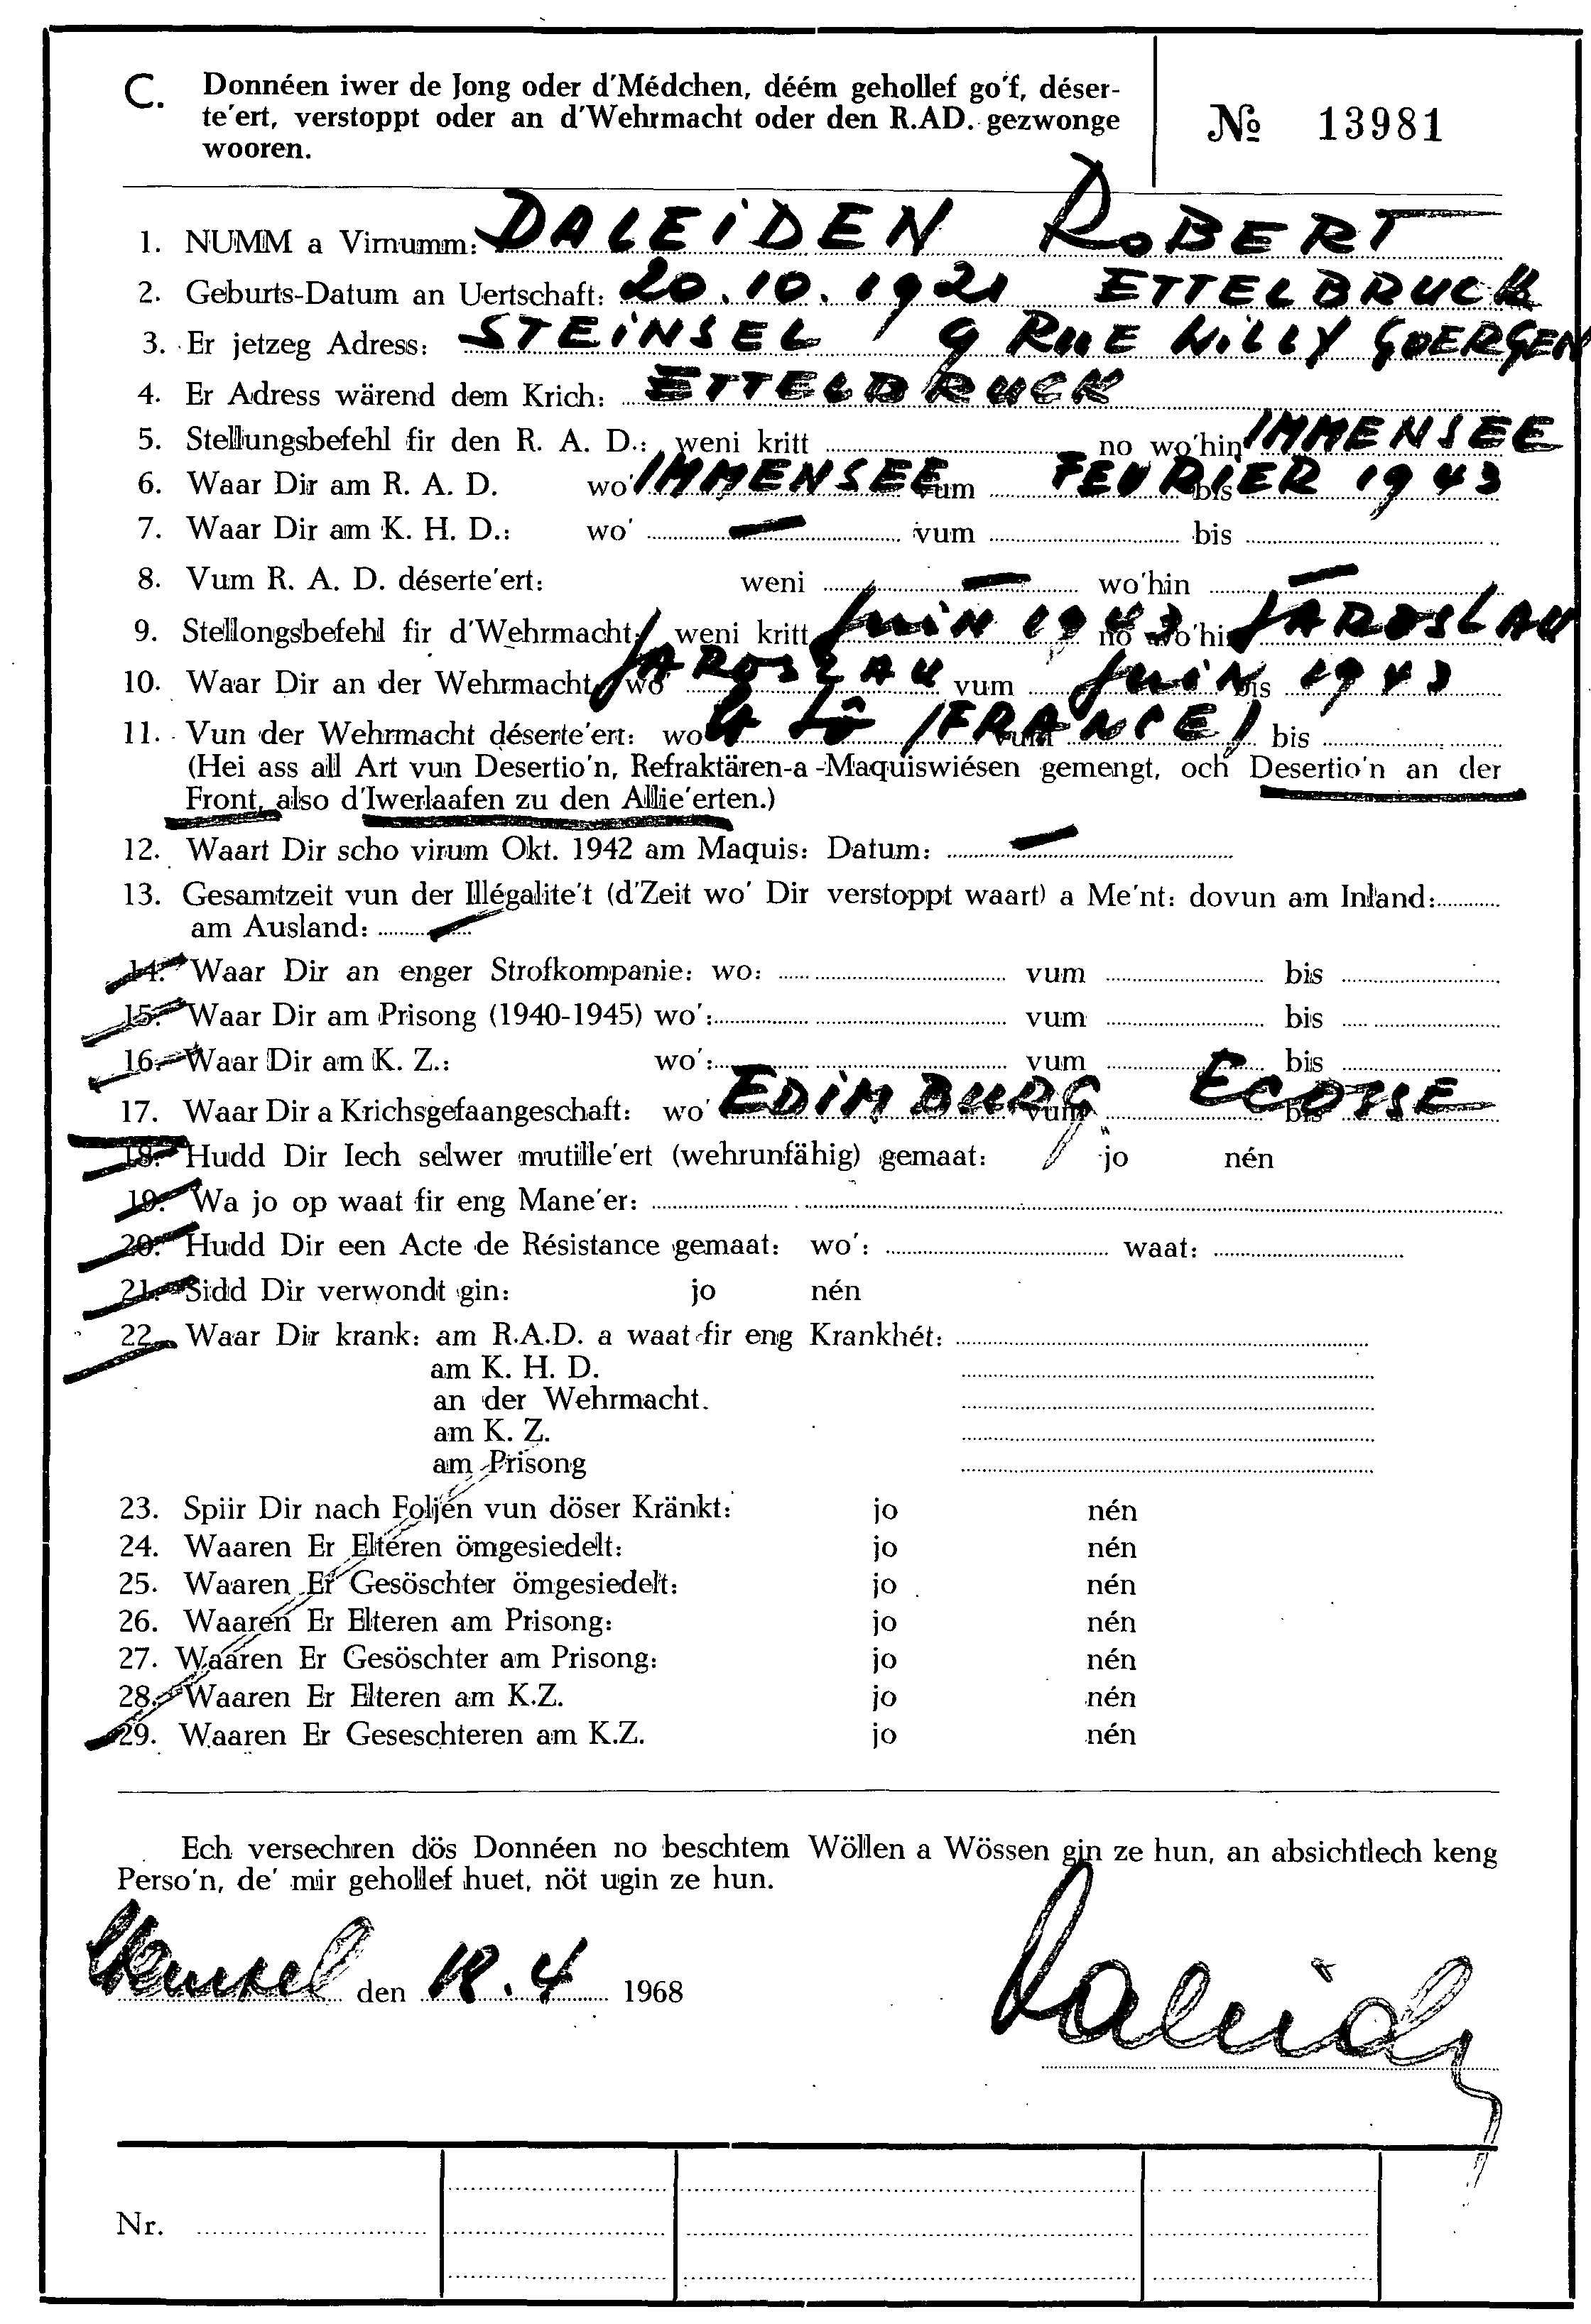 C. Donnéen iwer de Jong oder d'Médchen, déém gehollef go'f, déser-
te'ert, verstoppt oder an d'Wehrmacht oder den R.AD. gezwonge
wooren.
№ 13981
1. NUMM a Virnumm: DALEIDEN ROBERT
2. Geburts-Datum an Uertschaft: 20.10.1921 ETTELBRUCK
3. Er jetzeg Adress: STEINSEL 9 RUE WILLY GOERGEN
4. Er Adress wärend dem Krich: ETTELBRUCK
5. Stellungsbefehl fir den R. A. D.: weni kritt no wo'hin IMMENSEE
6. Waar Dir am R. A. D. wo' IMMENSEE vum FEVRIER 1943 bis
7. Waar Dir am K. H. D.: wo' — vum bis
8. Vum R. A. D. déserte'ert: weni — wo'hin —
9. Stellongsbefehl fir d'Wehrmacht: weni kritt JUIN 1943 no wo'hin JAROSLAU
10. Waar Dir an der Wehrmacht wo' JAROSLAU vum JUIN 1943 bis
11. Vun der Wehrmacht déserte'ert: wo' St Lô (FRANCE) vum bis
(Hei ass all Art vun Desertio'n, Refraktären-a-Maquiswiésen gemengt, och Desertio'n an der
Front, also d'Iwerlaafen zu den Allie'erten.)
12. Waart Dir scho virum Okt. 1942 am Maquis: Datum: —
13. Gesamtzeit vun der Illégalite't (d'Zeit wo' Dir verstoppt waart) a Me'nt: dovun am Inland:
am Ausland: —
14. Waar Dir an enger Strofkompanie: wo: vum bis
15. Waar Dir am Prisong (1940-1945) wo': vum bis
16. Waar Dir am K. Z.: wo': vum bis
17. Waar Dir a Krichsgefaangeschaft: wo' EDIMBURG vum ECOSSE bis
18. Hudd Dir Iech selwer mutille'ert (wehrunfähig) gemaat: jo nén
19. Wa jo op waat fir eng Mane'er:
20. Hudd Dir een Acte de Résistance gemaat: wo': waat:
21. Sidd Dir verwondt gin: jo nén
22. Waar Dir krank: am R.A.D. a waat fir eng Krankhét:
am K. H. D.
an der Wehrmacht.
am K. Z.
am Prisong
23. Spiir Dir nach Foljén vun döser Kränkt: jo nén
24. Waaren Er Elteren ömgesiedelt: jo nén
25. Waaren Er Gesöschter ömgesiedelt: jo nén
26. Waaren Er Elteren am Prisong: jo nén
27. Waaren Er Gesöschter am Prisong: jo nén
28. Waaren Er Elteren am K.Z. jo nén
29. Waaren Er Geseschteren am K.Z. jo nén
Ech versechren dös Donnéen no beschtem Wöllen a Wössen gin ze hun, an absichtlech keng
Perso'n, de' mir gehollef huet, nöt ugin ze hun.
Steinsel den 18.4 1968
Daleiden
Nr.